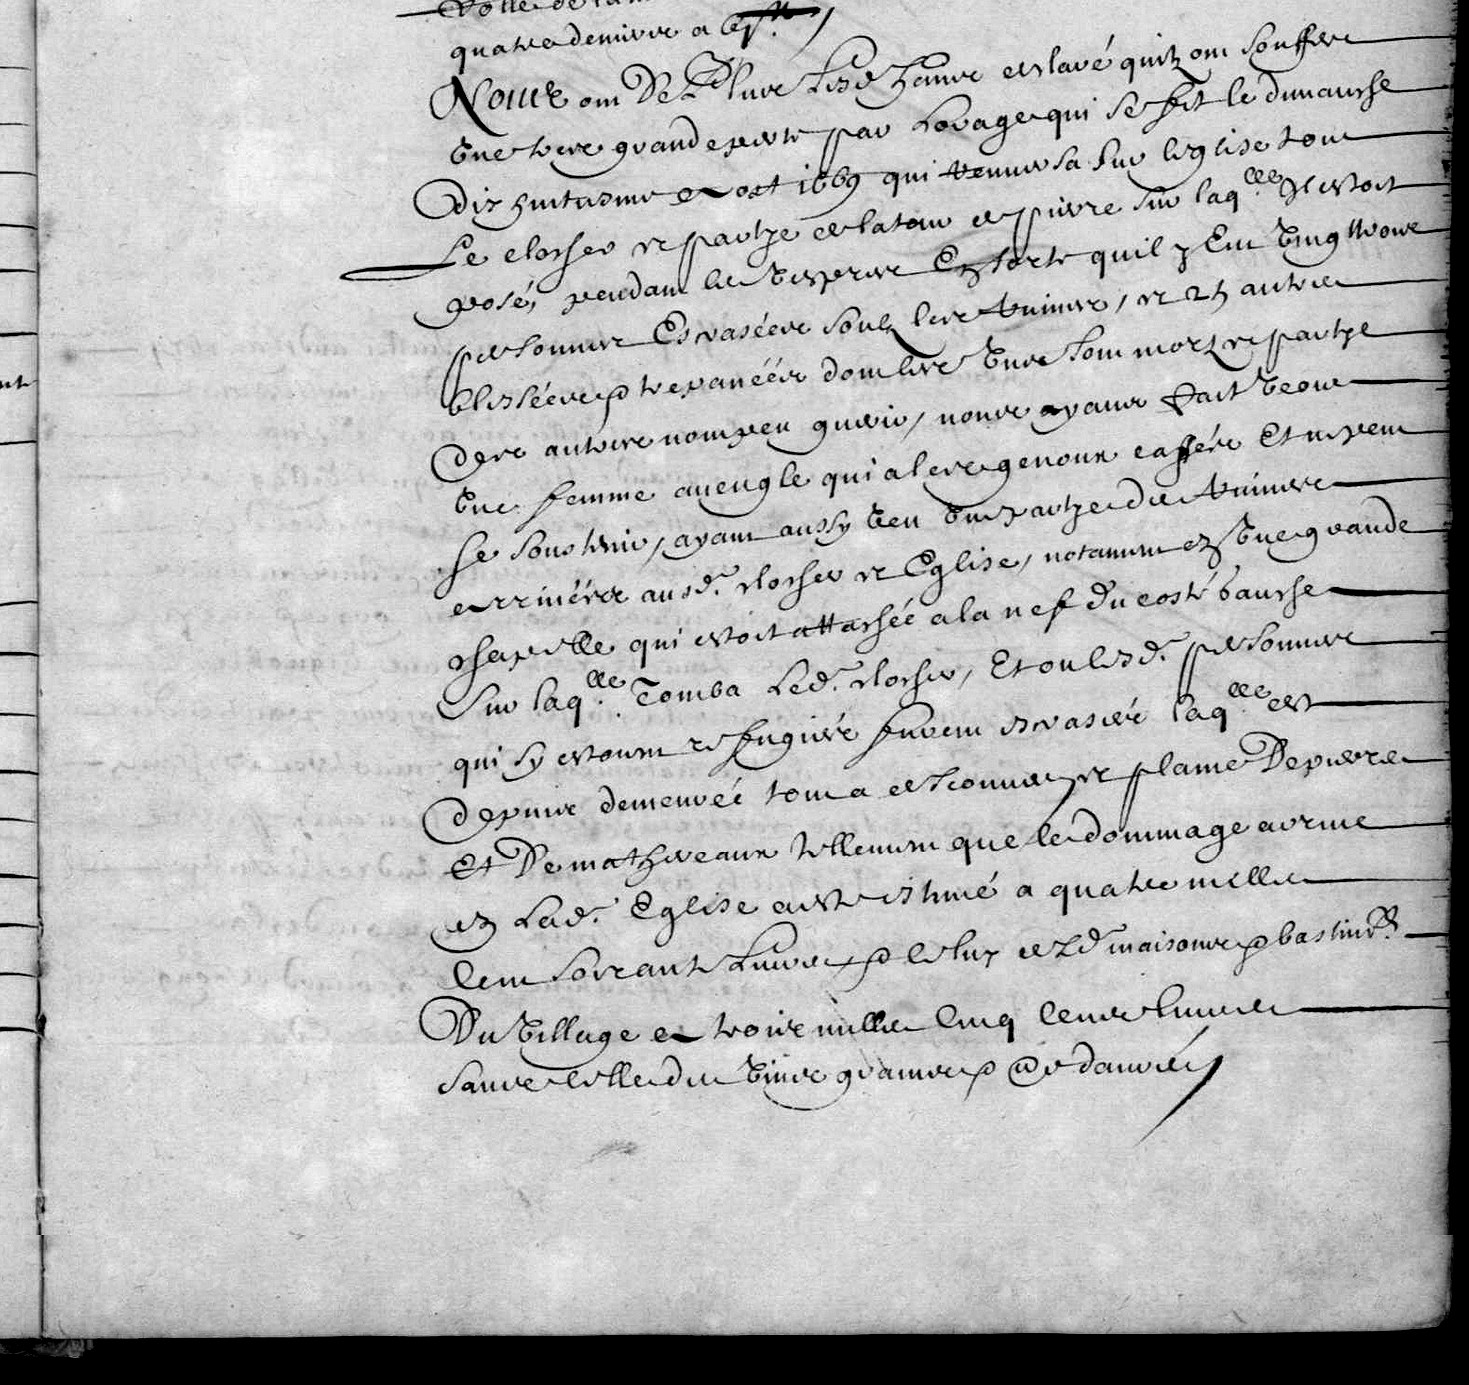 quatre deniers a
Nous ont De Plus lesd. habitans declaré quilz ont souffert
Une tres grande perte par Lorage qui se fit le dimanche
Dix huitiesme aoust 1669 qui renversa sur leglise tout
Le clocher et partye de la tour de pierre sur laq.lle Il estoit
posé, pendant les Vespres En sorte quil y Eut Vingt trois
personnes Escrasées soubz les ruines, et 25 autres
blessées et trepanées dont les Uns sont mortz et partye
des autres nompeu guerir, nous ayant fait Veoir
Une femme aveugle qui a les genoux cassés Et ne peut
se soustenir, ayant aussy Veu Une partye des ruines
arrivées ausd. clocher et Eglise, notamment en Une grande
chapelle qui estoit attachée a la nef du costé gauche
Sur laq.lle Tomba Led. clocher, Et ou lesd. personnes
qui sy estoient refugiés furent escrasés laq.lle est
depuis demeurée toute decouverte et plaine De pierres
Et De mathereaux tellement que le dommage arrivé
en Lad. Eglise a esté estimé a quatre mille
Cent soixante Livres et celuy desd. maisons et bastimens
Du Village a trois mille Cinq Cens livres
sans celle des Vins grains et denrées